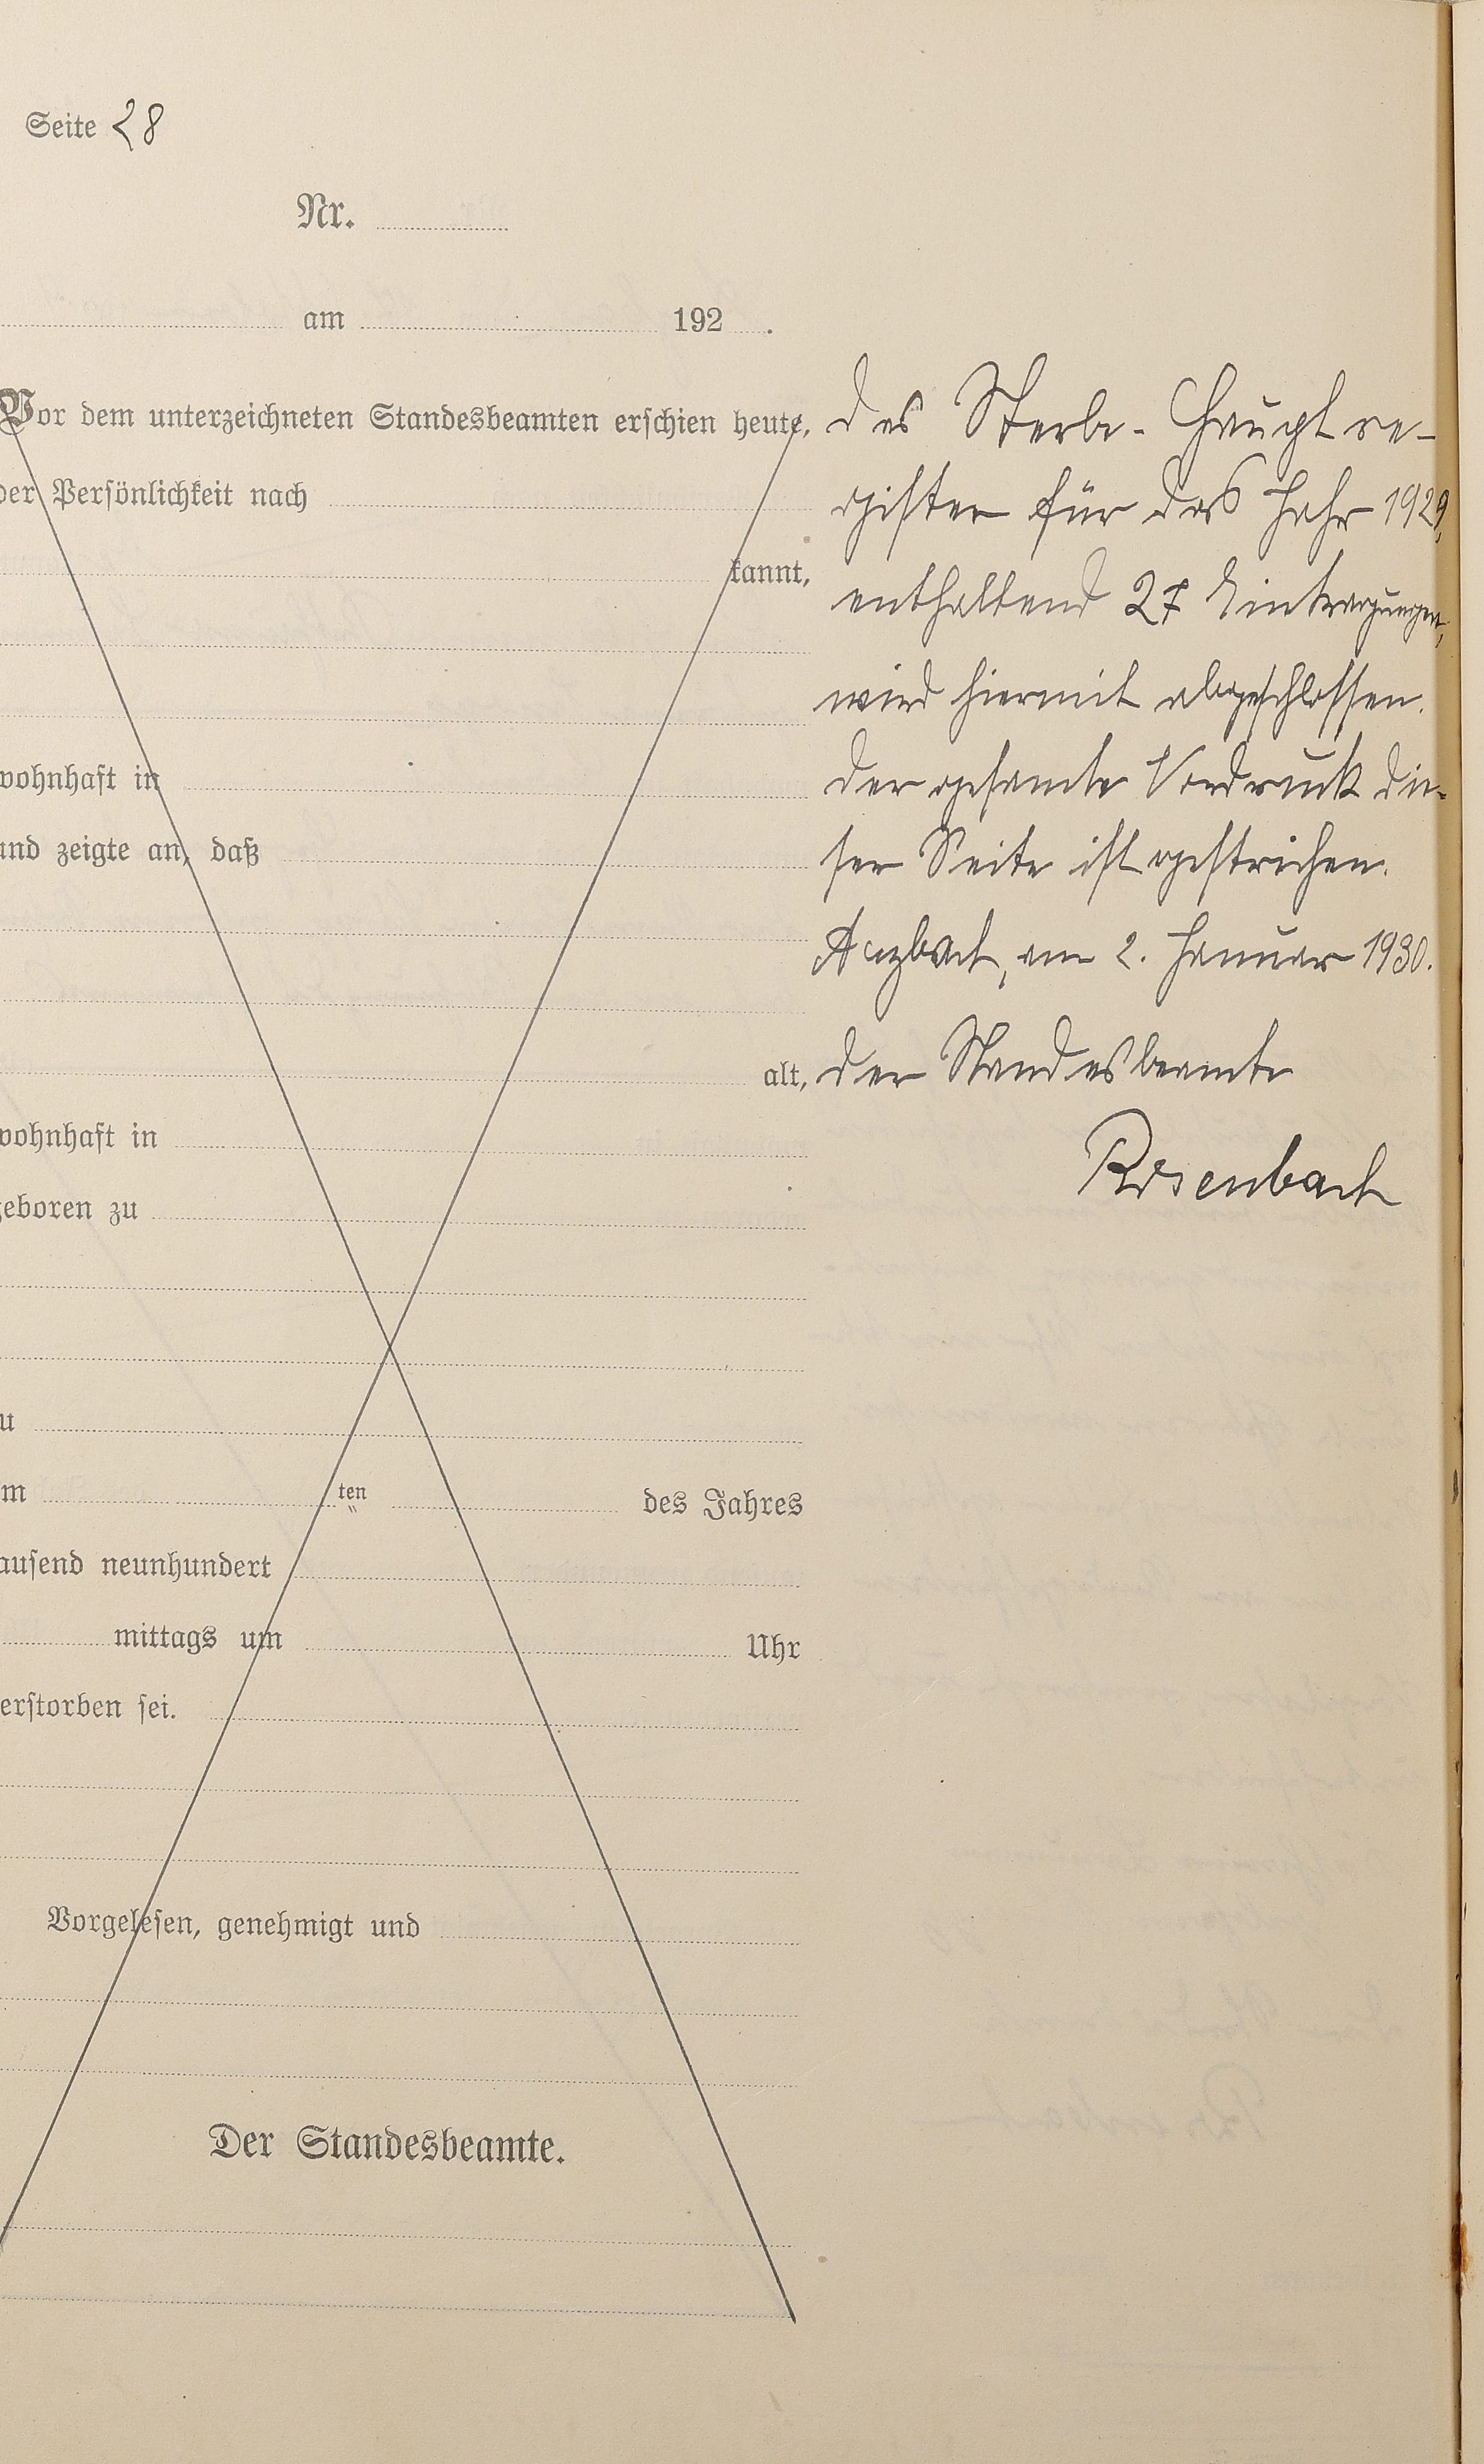 Seite 28
Nr.
am 192 .
Vor dem unterzeichneten Standesbeamten erschien heute,
der Persönlichkeit nach
kannt,
wohnhaft in
und zeigte an, daß
alt,
wohnhaft in
geboren zu
zu
am ten des Jahres
tausend neunhundert
mittags um Uhr
verstorben sei.
Vorgelesen, genehmigt und
Der Standesbeamte.
Das Sterbe-Hauptre-
gister für das Jahr 1929,
enthaltend 27 Eintragungen,
wird hiermit abgeschlossen.
Der gesamte Vordruck die-
ser Seite ist gestrichen.
am 2. Januar 1930.
Der Standesbeamte
Rosenbach